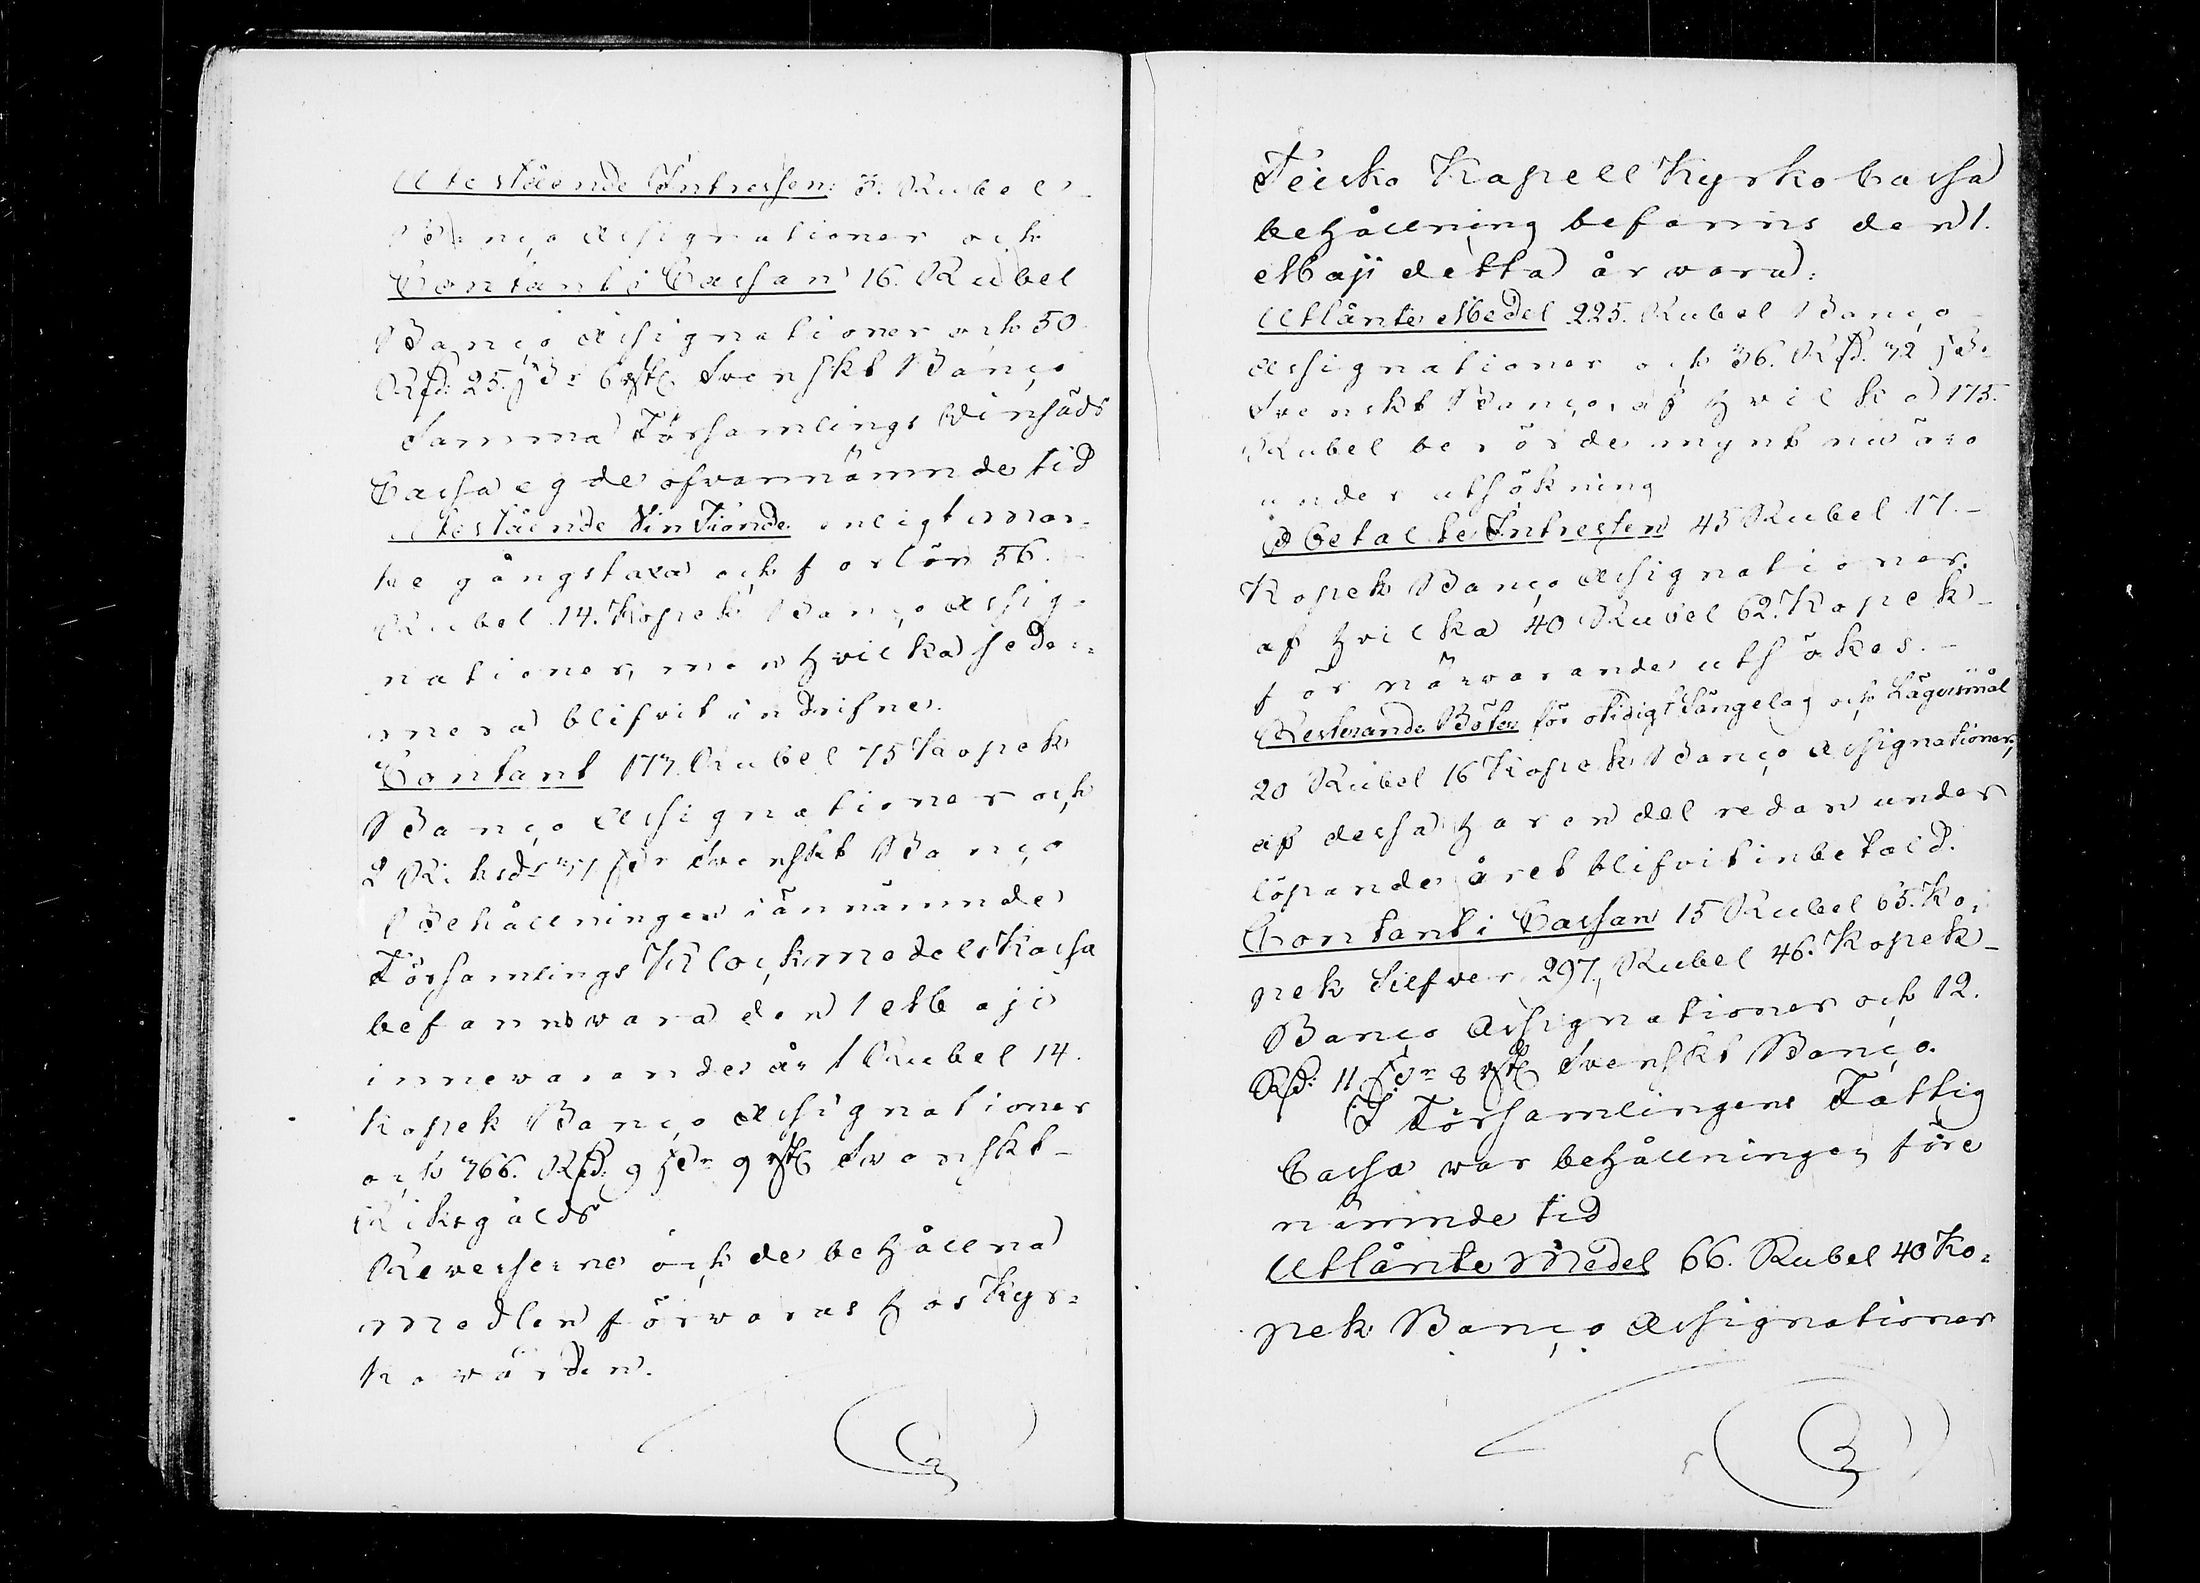 Utestående Intressen: 3. Rubel
Banco Assignationer och
Contant i Cassan 16. Rubel
Banco Assignationer och 50
Rd: 25. s. 6 rst. Svenskt Banco
Samma Församlings Vinsäds
Cassa egde ofvannämnde tid
Utestående Vin Tionde enligt mar-
kegångstaxa och förlön 56.
Rubel 14. Kopek Banco Assig-
nationer, men hvilka seder-
mera blifvit indrifne.
Contant 177 Rubel 75 Kopek
Banco Assignationer och
2 Riksdr 31 s. Svenskt Banco
Behållningen i ännämnde
Församlings Klockmedels Kassa
befanns vara den 1 Maji
innevarande år 1 Rubel 14.
Kopek Banco Assignationer
och 366. Rd: 9 s. 9 rst. Svenskt
Riksgälds
Reverserne och de behållna
medlen förvaras hos Kyr-
kovärden.
Teisko Kapell Kyrko Cassa
behållning befanns den 1.
Maji detta år vara:
Utlånte Medel 225. Rubel Banco
Assignationer och 36. Rd. 32 s.
Svenskt Banco, af hvilka 175.
Rubel berörde mynt nu äro
under utsökning
Obetalte Intressen 45 Rubel 17.
Kopek Banco Assignationer,
af hvilka 40 Rubel 62. Kopek
för närvarande utsökes.
Resterande Böter för otidigt Sängelag och Lägersmål
20 Rubel 16 Kopek Banco Assignationer,
af dessa har en del redan under
löpande året blifvit inbetald.
Contant i Cassan 15 Rubel 65. Ko-
pek Silfver, 297. Rubel 46. Kopek
Banco Assignationer och 12.
Rd: 11 s. 8 rst. Svenskt Banco.
I Församlingens Fattig
Cassa var behållningen före
nämnde tid
Utlånte Medel 66. Rubel 40 Ko-
pek Banco Assignationer